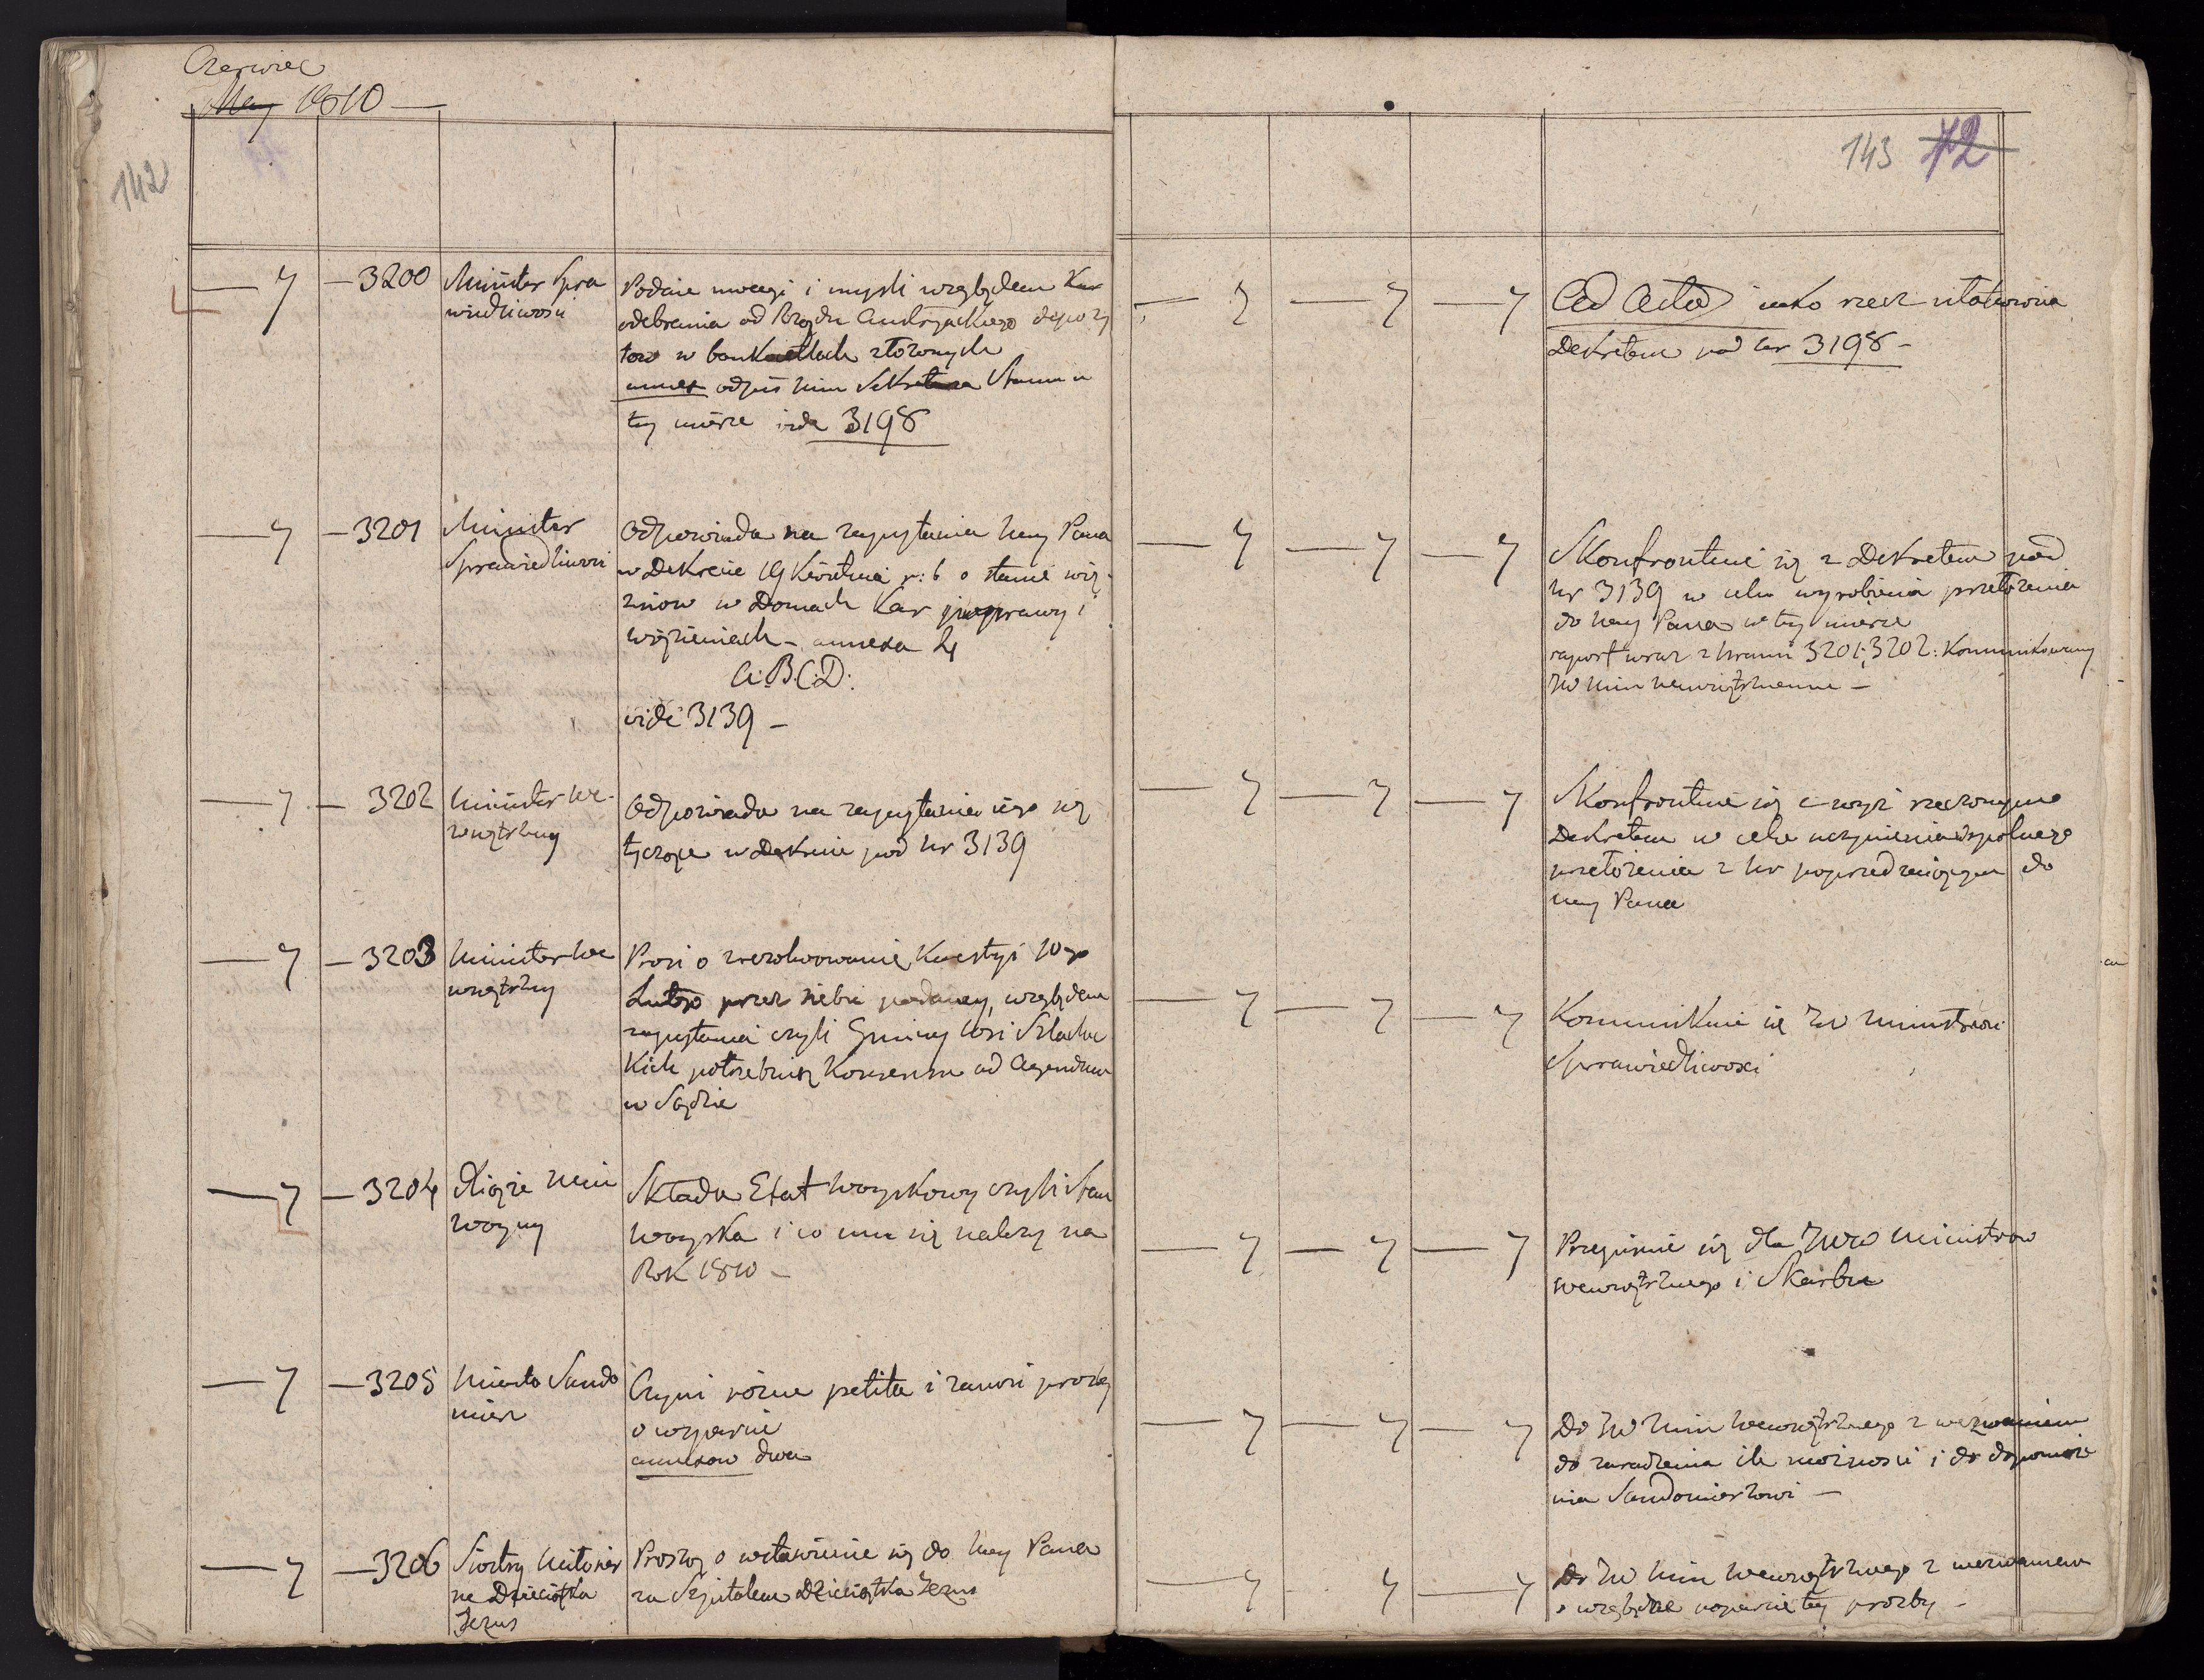 Czerwiec
May 1810 —
142
— 7 — 3200 Minister Spra
wiedliwości
Podaie uwagi i mysli względem
odebrania od Rządu Austryackiego depozy
tow w banknotach złożonych
annex odpis Min Sekretarza Stanu w
tey mierze vide 3198
— 7 — 3201 Minister
Sprawiedliwosci
Odpowiada na zapytania Nay Pana
w Dekrecie 19 Kwietnia r: b o stanie wię
zniow w Domach Kar poprawy i
więzieniach — annexa 4
A: B: C: D:
vide 3139 —
— 7 — 3202 Minister We-
wnętrzny
Odpowiada na zapytanie iego się
tyczące w dekrecie pod Nr 3139
— 7 — 3203 Minister We
wnętrzny
Prosi o zrezolwowanie Kwestyi 10go
Lutego przez siebie podaney, względem
zapytania czyli Gminy Wsi Szlachec
kich potrzebuią Konsensu ad Agendum
w Sądzie
— 7 — 3204 Xiąże Min
Woyny
Składa Etat Woyskowy czyli stan
Woyska i co mu się należy na
Rok 1810 —
— 7 — 3205 Miasto Sando
mierz
Czyni rózne petita i zanosi prozby
o wsparcie
annexow dwa
— 7 — 3206 Siostry Miłosier
ne Dzieciątka
Jezus
Proszą o wstawienie się do Nay Pana
za Szpitalem Dzieciątka Jezus
143 72
— 7 — 7 — 7 Ad Acta iako rzecz ułatwiona
Dekretem pod Nr 3198 —
— 7 — 7 — 7 Skonfrontuie się z Dekretem pod
Nr 3139 w celu wyrobienia przełożenia
do Nay Pana w tey mierze
raport wraz z Nrami 3201; 3202: Kommunikowany
JW Min Wewnętrznemu —
— 7 — 7 — 7 Skonfrontuie się z wyż rzeczonym
Dekretem w celu uczynienia wspolnego
przełożenia z Nr poprzedzaiącym do
Nay Pana
— 7 — 7 — 7 Kommunikuie się JW Ministrowi
Sprawiedliwosci
— 7 — 7 — 7 Przepisuie się dla JWW Ministrow
Wewnętrznego i Skarbu
— 7 — 7 — 7 Do JW Min Wewnętrznego z wezwaniem
do zaradzenia ile możności i do dopomoże
nia Sandomierzowi —
— 7 7 — 7 Do JW Min Wewnętrznego z wezwaniem
o względne poparcie tey prozby —